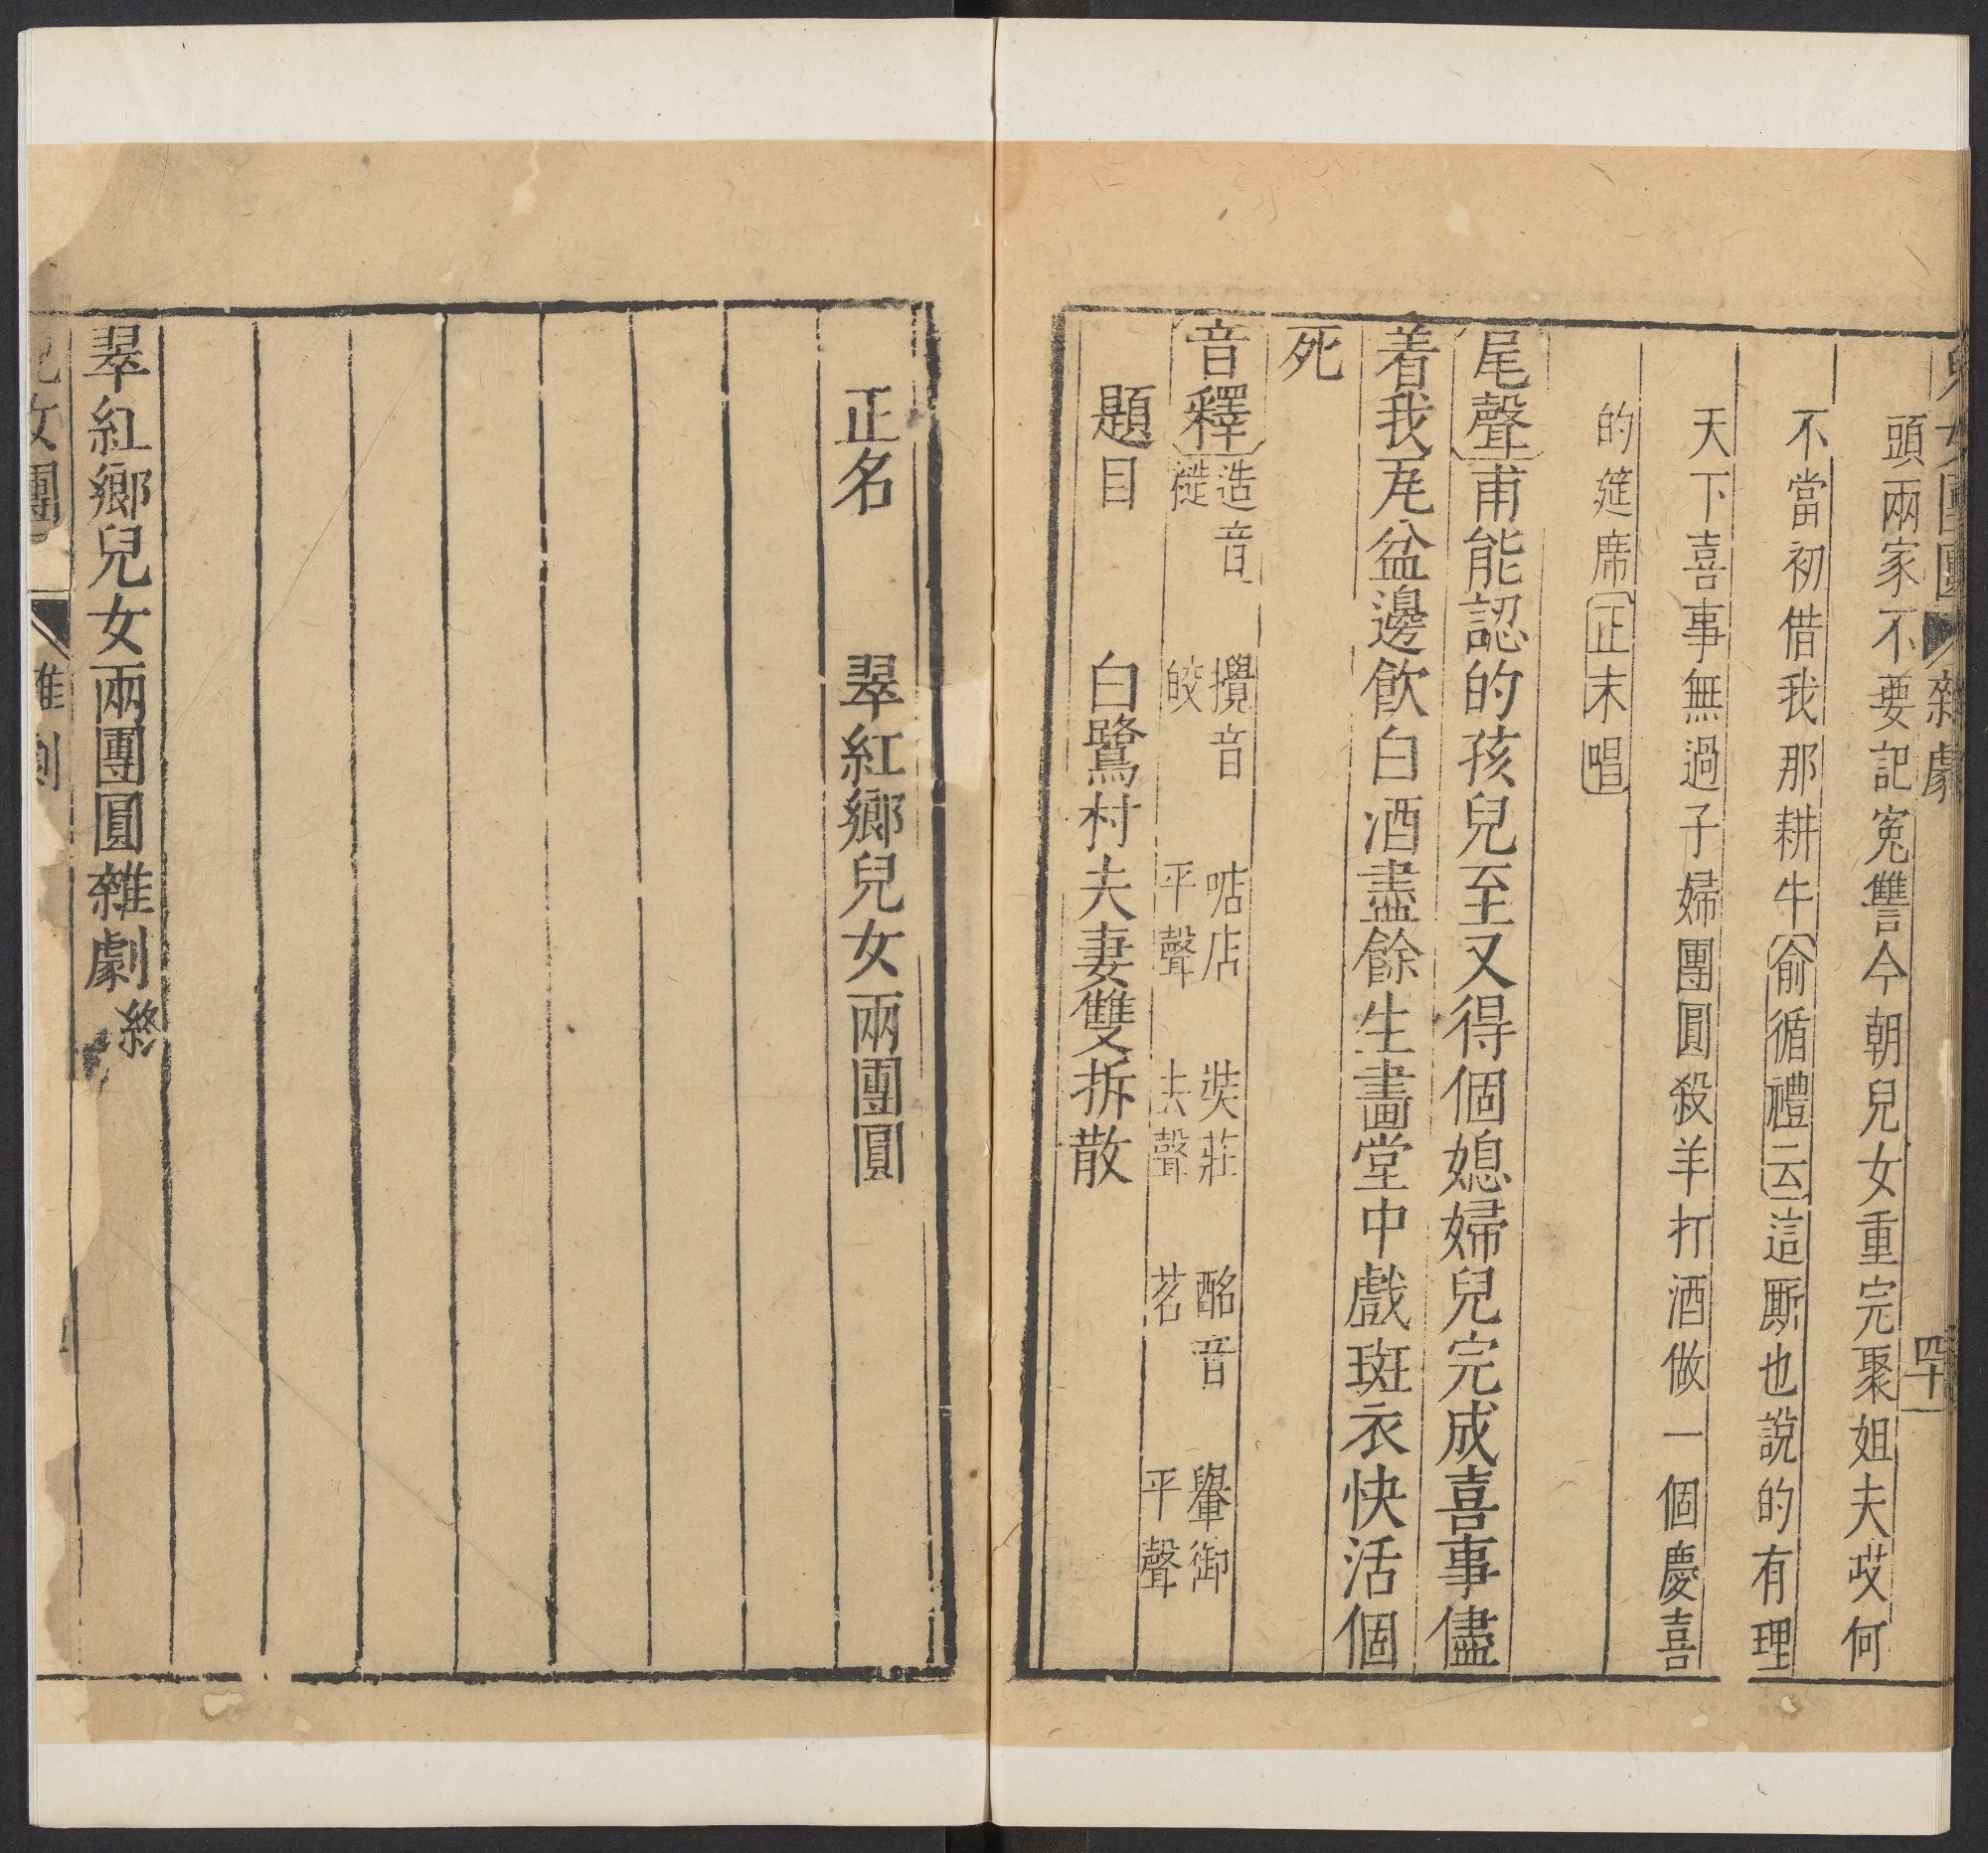 兒女團圓 雜劇 四十一
頭兩家不要記寃讐今朝兒女重完聚姐夫哎何
不當初借我那耕牛俞循禮云這厮也說的有理
天下喜事無過子婦團圓殺羊打酒做一個慶喜
的筵席正末唱
尾聲甫能認的孩兒至又得個媳婦兒完成喜事儘
着我瓦盆邊飲白酒盡餘生畫堂中戲斑衣快活個
死
音釋 造音 攪音皎 㗠店平聲 奘莊去聲 酩音茗 轝御平聲
題目 白鷺村夫妻雙拆散
正名 翠紅鄉兒女兩團圓
翠紅鄉兒女兩團圓雜劇終
女團 雜劇